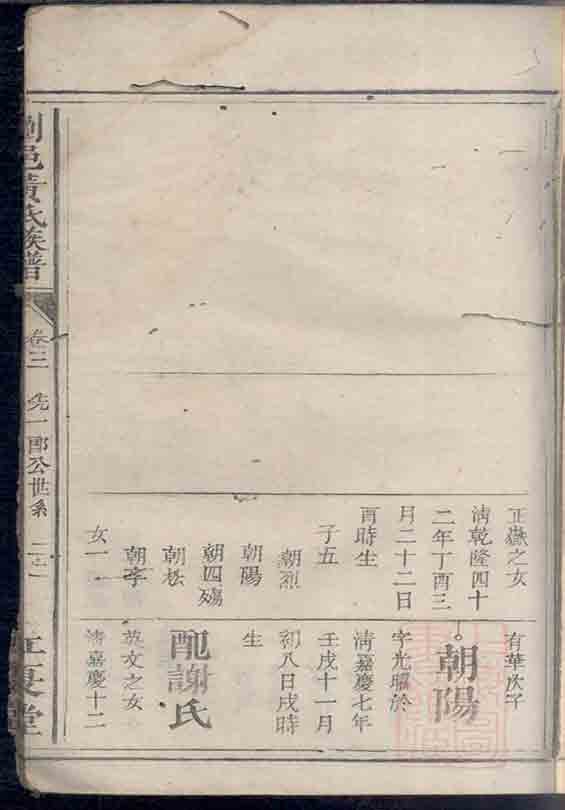 正嶽之女
清乾隆四十
二年丁酉三
月二十二日
酉時生
子五
朝烈
朝陽
朝四殤
朝松
朝孝
女一
有華次子
朝陽
字光昭於
清嘉慶七年
壬戌十一月
初八日戌時
生
配謝氏
英文之女
清嘉慶十二
邑黃氏族譜
卷三
先一郎公世系
江夏堂